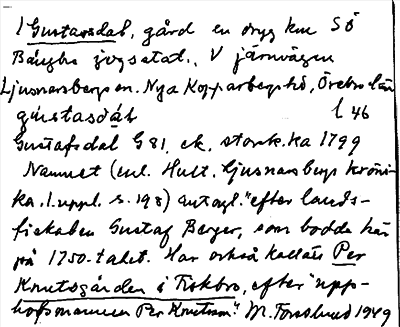 1 Gustavsdal, gård en dryg km SÖ
Bångbro jvgstat., V järnvägen
Ljusnarsbergs sn. Nya Kopparbergs hd, Örebro län
gústasdàl l 46
Gustafsdal G 81, ek. storsk. ka 1799
Namnet (enl. Hult. Ljusnarsbergs kröni-
ka, 1. uppl. s. 198) antagl. "efter lands-
fiskalen Gustaf Berger, som bodde här
på 1750-talet. Har också kallats Per
Knutsgården i Fiskbro, efter "upp-
hofsmannen Per Knutson". M. Forslund 1949